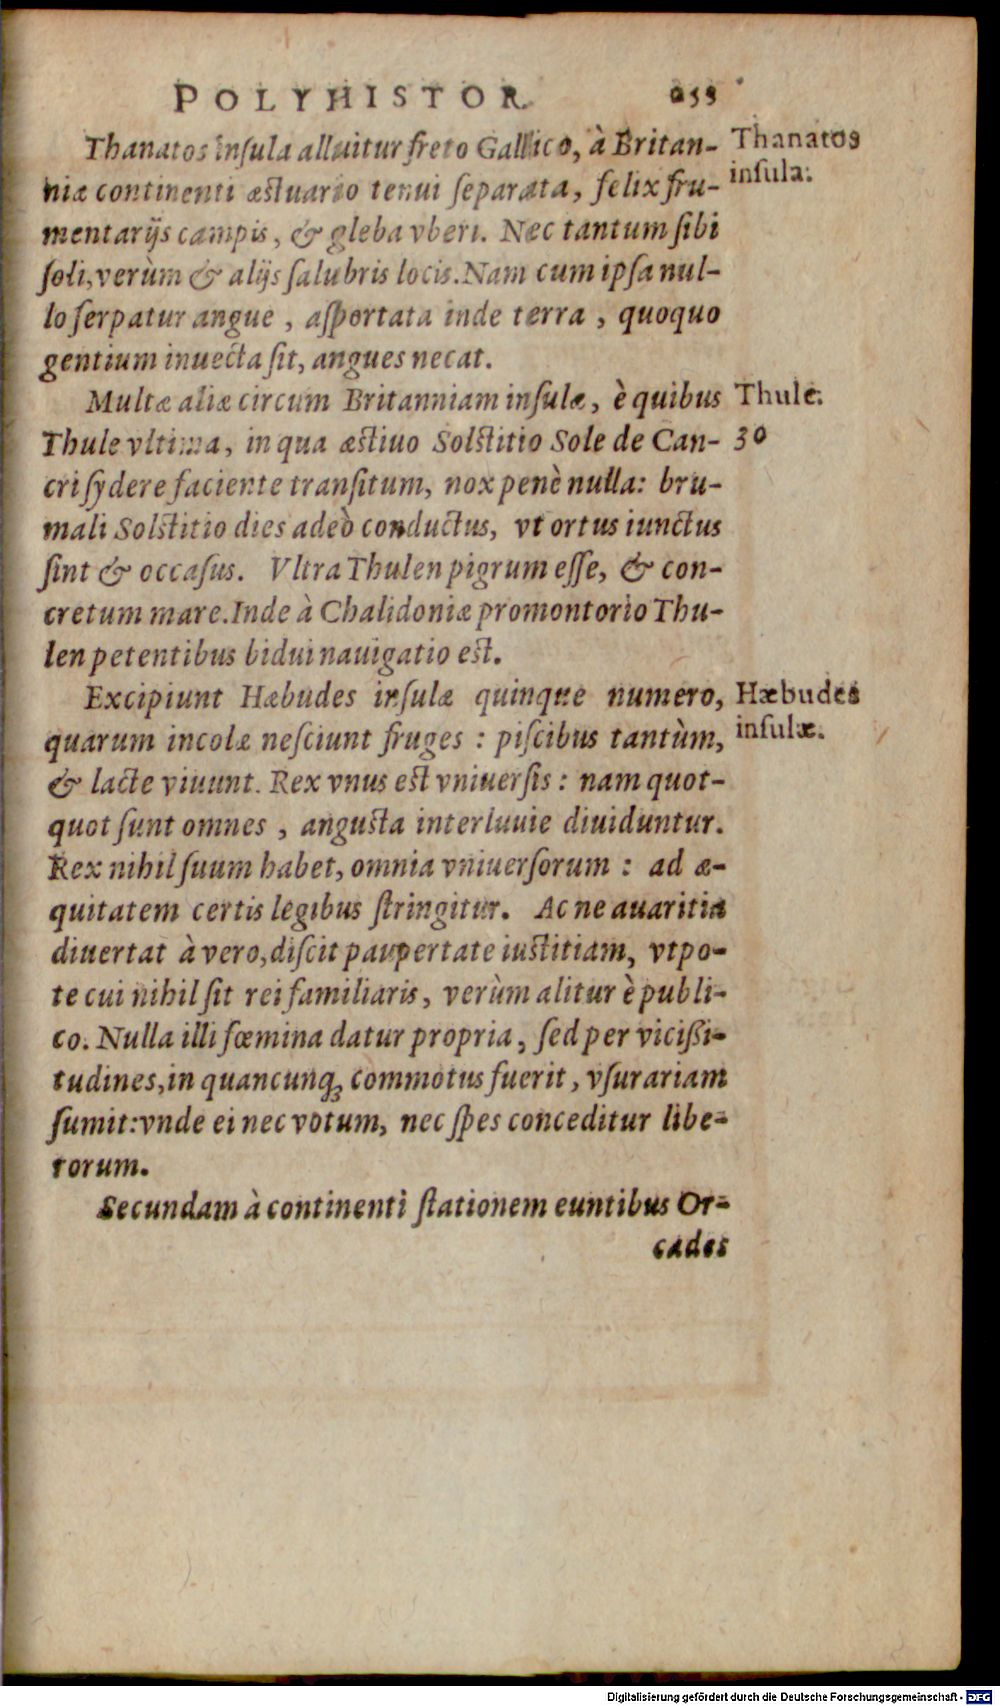 POLYHISTOR
Thanatos insula alluitur freto Gallico, à Britan-
niæ continenti æstuario tenui separata, felix fru-
mentarijs campis, & gleba vberi. Nec tantum sibi
soli, verùm & alijs salubris locis. Nam cum ipsa nul-
lo serpatur angue, asportata inde terra, quoquo
gentium inuecta sit, angues necat.
Thanatos
insula.
Multæ aliæ circum Britanniam insulæ, è quibus
Thule vltima, in qua æstiuo Solstitio Sole de Can-
cri sydere faciente transitum, nox penè nulla: bru-
mali Solstitio dies adeò conductus, vt ortus iunctus
sint & occasus. Vltra Thulen pigrum esse, & con-
cretum mare. Inde à Chalidoniæ promontorio Thu-
len petentibus bidui nauigatio est.
Thule.
30
Excipiunt Hæbudes insulæ quinque numero,
quarum incolæ nesciunt fruges : piscibus tantùm,
& lacte viuunt. Rex vnus est vniuersis : nam quot-
quot sunt omnes, angusta interluuie diuiduntur.
Rex nihil suum habet, omnia vniuersorum : ad æ-
quitatem certis legibus stringitur. Ac ne auaritia
diuertat à vero, discit paupertate iustitiam, vtpo-
te cui nihil sit rei familiaris, verùm alitur è publi-
co. Nulla illi fœmina datur propria, sed per vicißi-
tudines, in quancunq; commotus fuerit, vsurariam
sumit: vnde ei nec votum, nec spes conceditur libe-
rorum.
Hæbudes
insulæ.
Secundam à continenti stationem euntibus Or-
cades
Digitalisierung gefördert durch die Deutsche Forschungsgemeinschaft - DFG